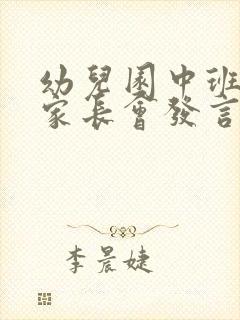 幼兒園中班
家長會發言
李晨婕